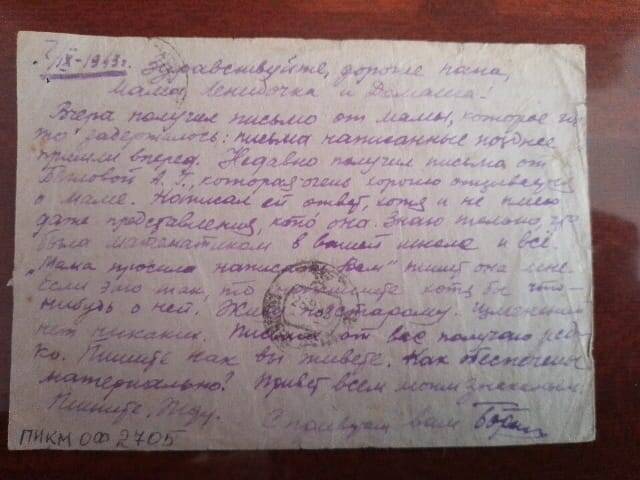 7/IX-1943г. Здравствуйте, дорогие папа,
мама, Лениночка и Домаша!
Вчера получил письмо от мамы, которое
задержалось: письма написанные позднее
пришли вперед. Недавно получил письма от
Беловой А. Г., которая очень хорошо отзывается
о маме. Написал ей ответ, хотя и не имею
даже представления, кто она. Знаю только, что
была математиком в вашей школе и всё.
„Мама просила написать Вам" пишет она мне.
Если это так, то напишите хотя бы что-
нибудь о ней. Живу по старому. Изменений
нет никаких. Письма от вас получаю ред-
ко. Пишите как вы живете. Как обеспечены
материально? Привет всем моим знакомым.
Пишите, жду.
С приветом к вам Борис
ПИКМ ОФ 2705